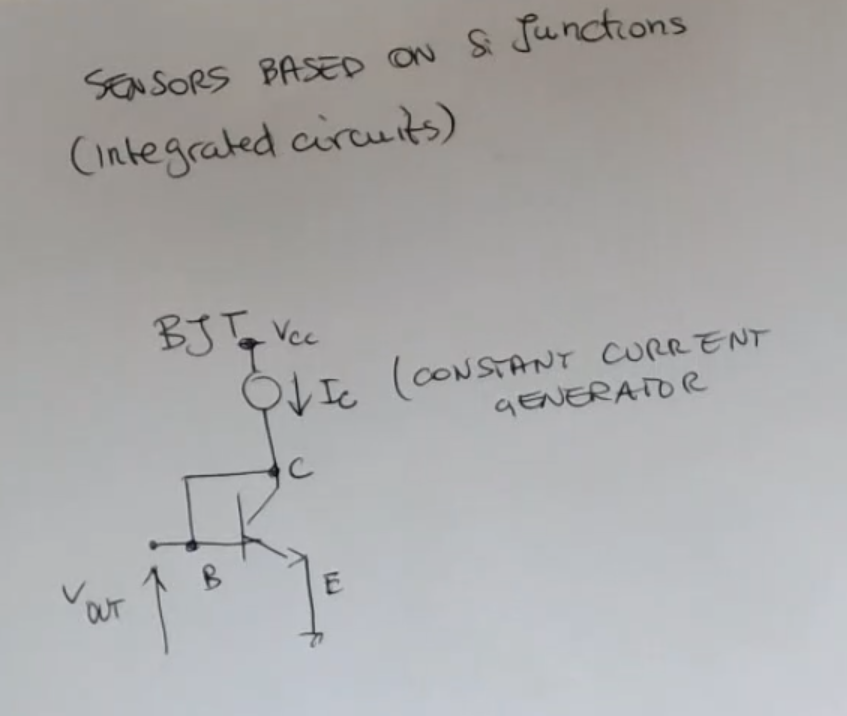 SENSORS BASED ON Si Junctions
(integrated circuits)
BJT
Vcc
Ic (CONSTANT CURRENT
GENERATOR
C
B
E
VOUT